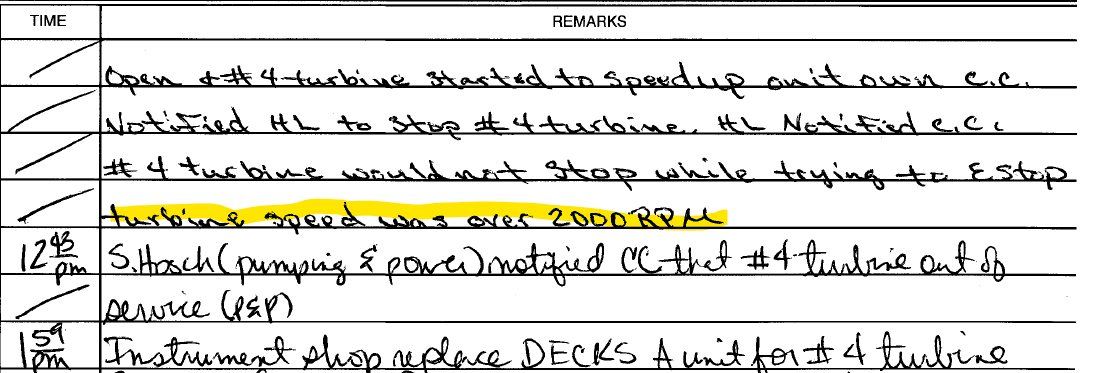 TIME REMARKS
Open & #4 turbine started to speed up on it own C.C.
Notified HL to stop #4 turbine. HL Notified C.C.
#4 turbine would not stop while trying to E Stop
turbine speed was over 2000 RPM
12 43 pm S. Hosch (pumping & power) notified CC that #4 turbine out of
service (P&P)
1 59 pm Instrument shop replace DECKS A unit for #4 turbine